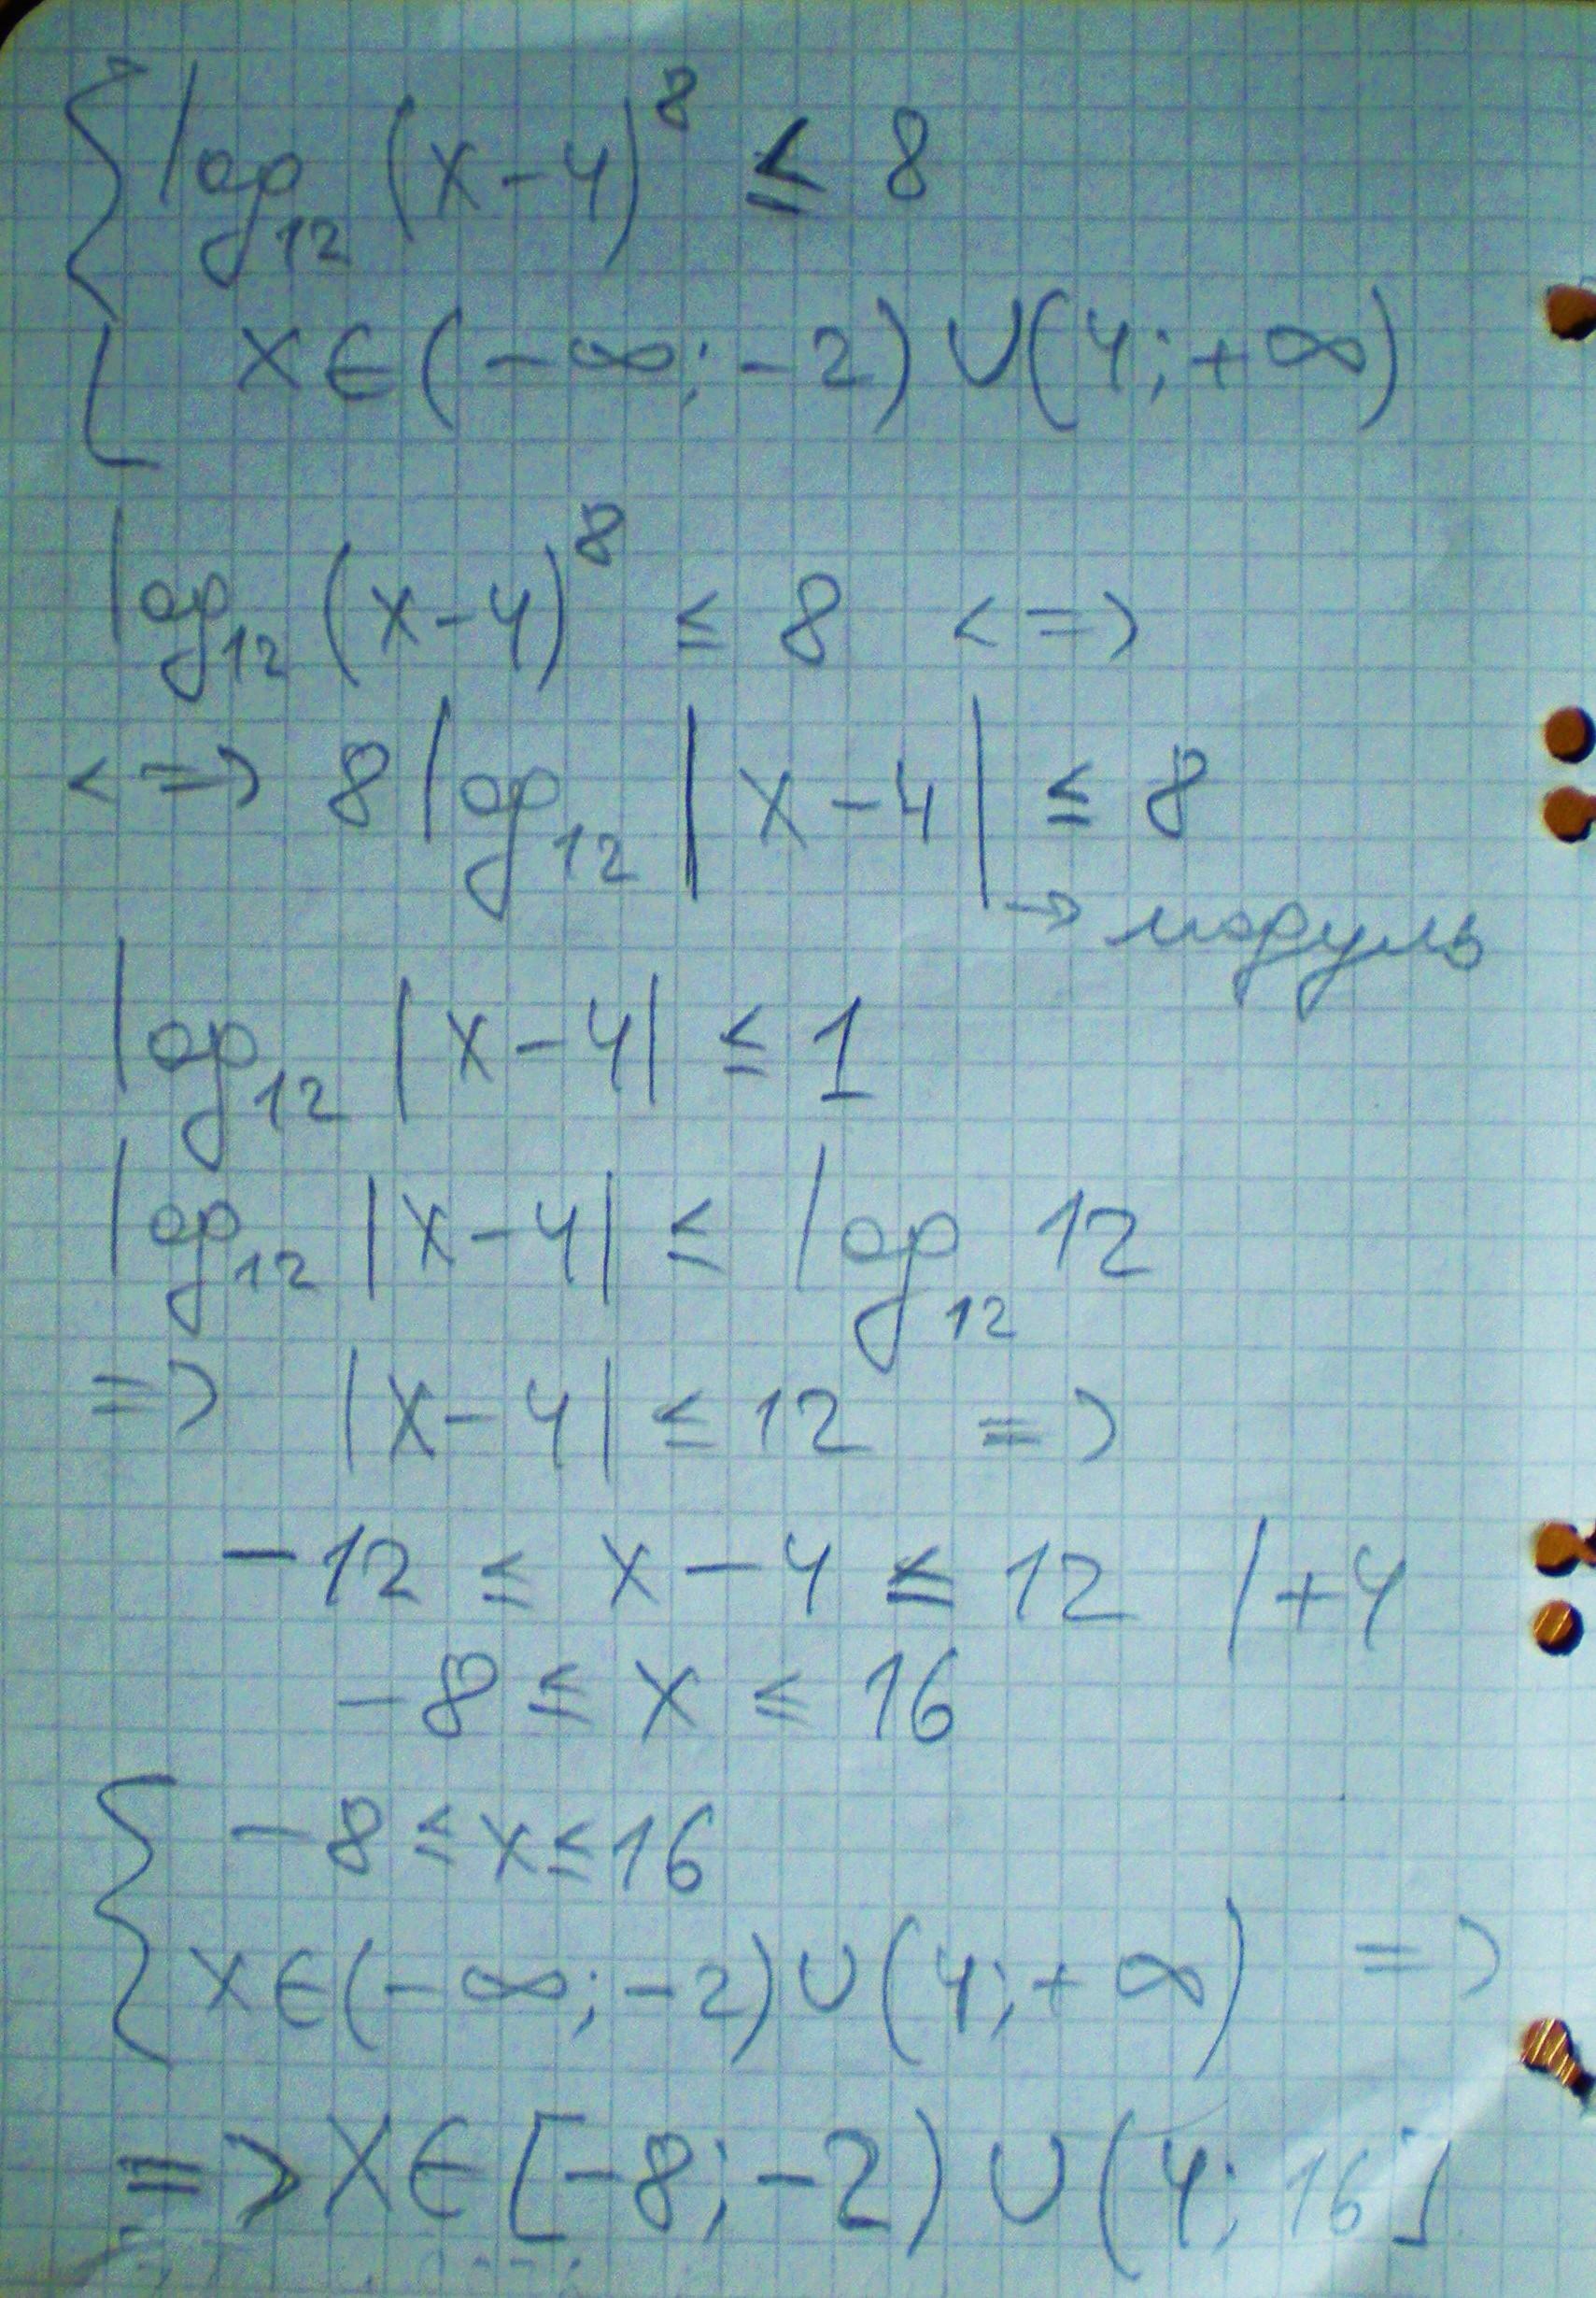 { log₁₂ (x-4)⁸ ≤ 8
x∈(-∞; -2)∪(4; +∞)
log₁₂ (x-4)⁸ ≤ 8 <=>
<=> 8 log₁₂ |x-4| ≤ 8
→ модуль
log₁₂ |x-4| ≤ 1
log₁₂ |x-4| ≤ log₁₂ 12
=> |x-4| ≤ 12 =>
-12 ≤ x-4 ≤ 12 /+4
-8 ≤ x ≤ 16
{ -8 ≤ x ≤ 16
x∈(-∞; -2)∪(4; +∞) =>
=> x∈[-8; -2)∪(4; 16]